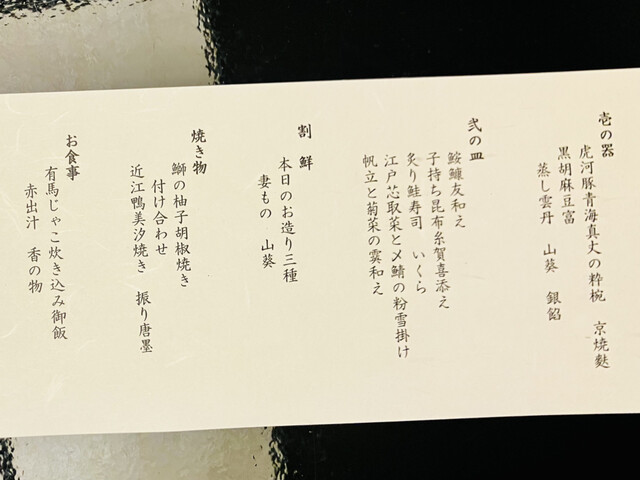 壱の器
虎河豚青海真丈の粋椀　京焼麩
黒胡麻豆富
蒸し雲丹　山葵　銀餡
弐の皿
鮟鱇友和え
子持ち昆布糸賀喜添え
炙り鮭寿司　いくら
江戸芯取菜と〆鯖の粉雪掛け
帆立と菊菜の霙和え
割鮮
本日のお造り三種
妻もの　山葵
焼き物
鰤の柚子胡椒焼き
付け合わせ
近江鴨美汐焼き　振り唐墨
お食事
有馬じゃこ炊き込み御飯
赤出汁　香の物